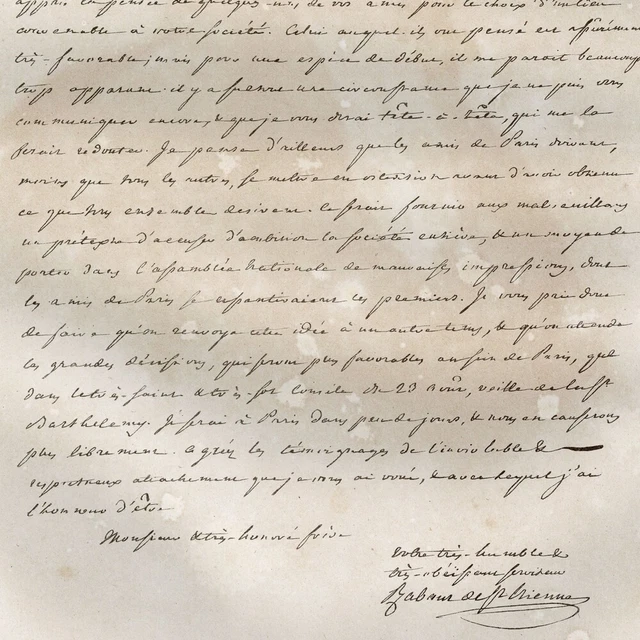 appris la pensée de quelques-uns de vos amis pour le choix d'un lieu
convenable à votre société. Celui auquel ils ont pensé est
très-favorable; mais pour une espèce de début, il me paroit beaucoup
trop apparent. il y a surtout une circonstance que je ne puis vous
communiquer encore, & que je vous dirai tête-à-tête, qui me la
feroit redouter. Je pense d'ailleurs que les amis de Paris doivent,
moins que tous les autres, se mettre en ostension avant d'avoir obtenu
ce que tous ensemble desirent. ce seroit fournir aux malveuillans
un prétexte d'accuser d'ambition la société entière, & un moyen de
porter dans l'assemblée Nationale de mauvaises impressions, dont
les amis de Paris se repentiroient les premiers. Je vous prie donc
de faire qu'on renvoye cette idée à un autre tems, & qu'on attende
les grandes décisions, qui seront plus favorables au sein de Paris, que
dans le très-saint & très-sot Concile du 23 août, veille de la St
Barthelemy. Je serai à Paris dans peu de jours, & nous en causerons
plus librement. agréez les témoignages de l'inviolable &
respectueux attachement que je vous ai voué, & avec lequel j'ai
l'honneur d'être
Monsieur & très-honoré frère
votre très-humble &
très-obéissant serviteur
Rabaut de St Etienne